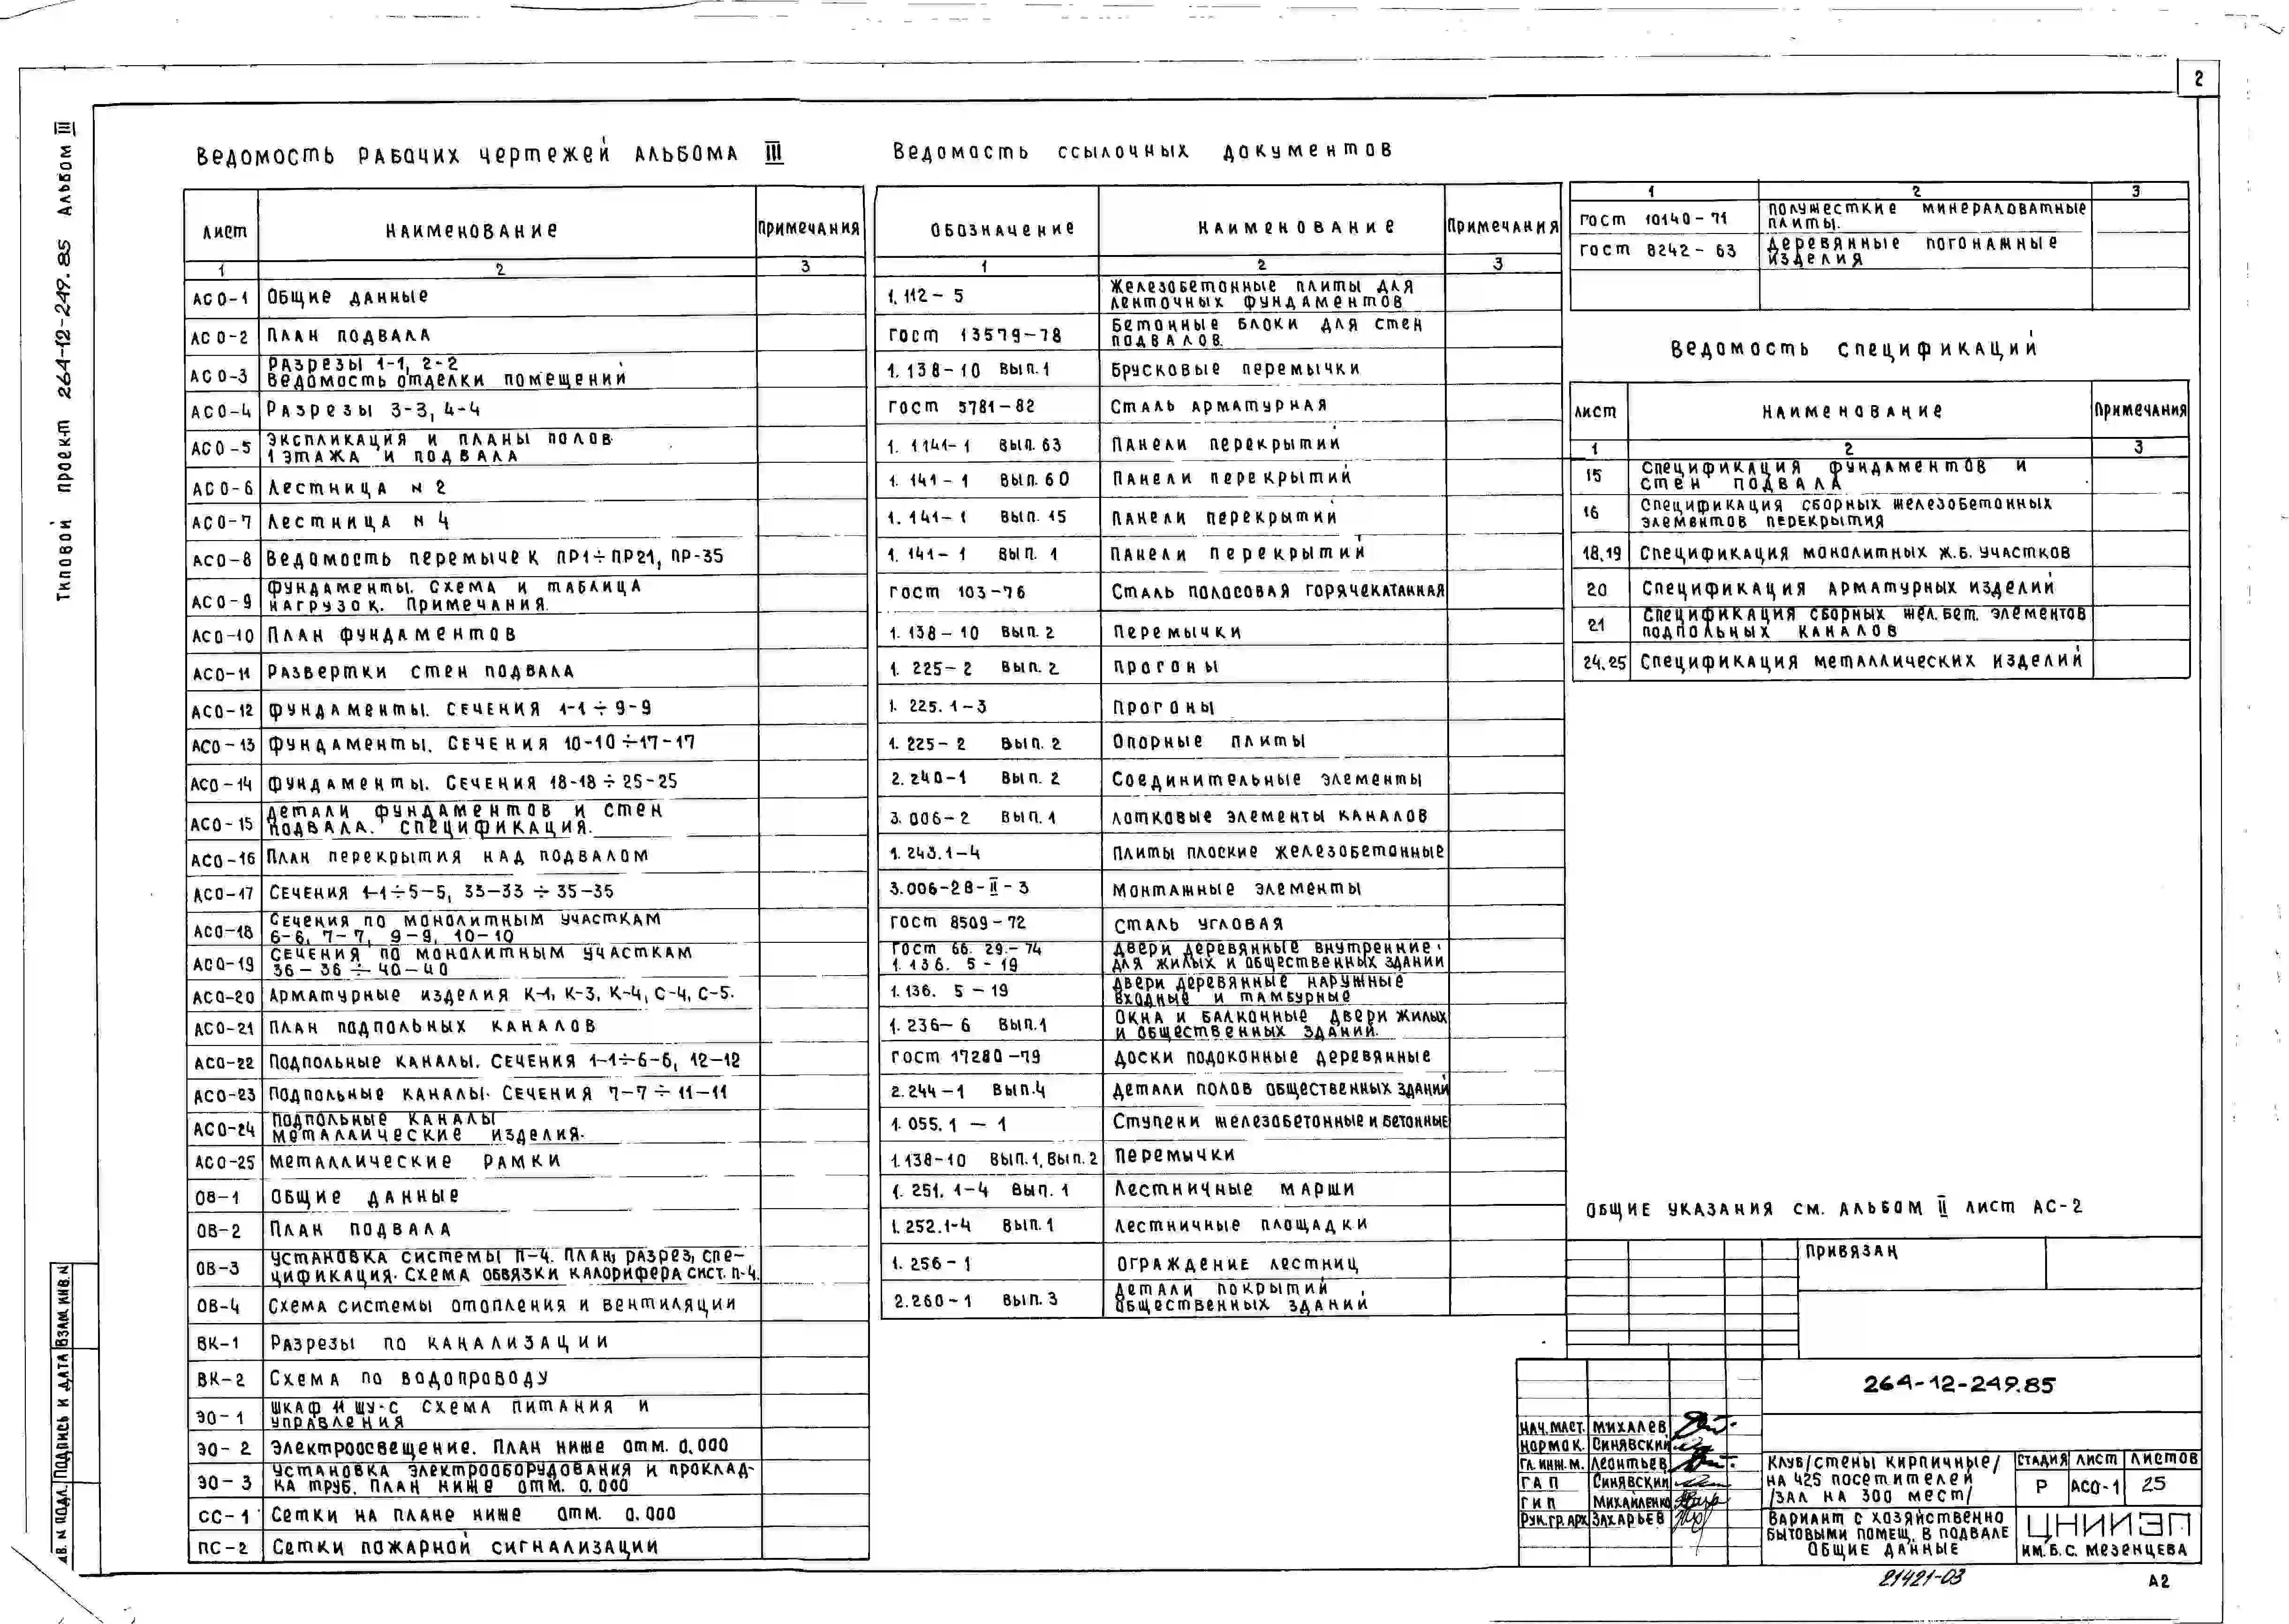 2
Типовой проект 264-12-249.85 Альбом III
Ведомость рабочих чертежей альбома III
Лист Наименование Примечания
1 2 3
АСО-1 Общие данные
АСО-2 План подвала
АСО-3 Разрезы 1-1, 2-2
Ведомость отделки помещений
АСО-4 Разрезы 3-3, 4-4
АСО-5 Экспликация и планы полов
1 этажа и подвала
АСО-6 Лестница N 2
АСО-7 Лестница N 4
АСО-8 Ведомость перемычек ПР1÷ПР21, ПР-35
АСО-9 Фундаменты. Схема и таблица
нагрузок. Примечания.
АСО-10 План фундаментов
АСО-11 Развертки стен подвала
АСО-12 Фундаменты. Сечения 1-1÷9-9
АСО-13 Фундаменты. Сечения 10-10÷17-17
АСО-14 Фундаменты. Сечения 18-18÷25-25
АСО-15 Детали фундаментов и стен
подвала. Спецификация.
АСО-16 План перекрытия над подвалом
АСО-17 Сечения 1-1÷5-5, 33-33÷35-35
АСО-18 Сечения по монолитным участкам
6-6, 7-7, 9-9, 10-10
АСО-19 Сечения по монолитным участкам
36-36÷40-40
АСО-20 Арматурные изделия К-1, К-3, К-4, С-4, С-5.
АСО-21 План подпольных каналов
АСО-22 Подпольные каналы. Сечения 1-1÷6-6, 12-12
АСО-23 Подпольные каналы. Сечения 7-7÷11-11
АСО-24 Подпольные каналы
металлические изделия.
АСО-25 Металлические рамки
ОВ-1 Общие данные
ОВ-2 План подвала
ОВ-3 Установка системы П-4. План, разрез, спе-
цификация. Схема обвязки калорифера сист. П-4.
ОВ-4 Схема системы отопления и вентиляции
ВК-1 Разрезы по канализации
ВК-2 Схема по водопроводу
ЭО-1 Шкаф 11 ШУ-С схема питания и
управления
ЭО-2 Электроосвещение. План ниже отм. 0.000
ЭО-3 Установка электрооборудования и проклад-
ка труб. План ниже отм. 0.000
СС-1 Сетки на плане ниже отм. 0.000
ПС-2 Сетки пожарной сигнализации
Ведомость ссылочных документов
Обозначение Наименование Примечания
1 2 3
1.112-5 Железобетонные плиты для
ленточных фундаментов
ГОСТ 13579-78 Бетонные блоки для стен
подвалов.
1.138-10 Вып.1 Брусковые перемычки
ГОСТ 5781-82 Сталь арматурная
1.1141-1 Вып.63 Панели перекрытий
1.141-1 Вып.60 Панели перекрытий
1.141-1 Вып.15 Панели перекрытий
1.141-1 Вып.1 Панели перекрытий
ГОСТ 103-76 Сталь полосовая горячекатанная
1.138-10 Вып.2 Перемычки
1.225-2 Вып.2 Прогоны
1.225.1-3 Прогоны
1.225-2 Вып.2 Опорные плиты
2.240-1 Вып.2 Соединительные элементы
3.006-2 Вып.1 Лотковые элементы каналов
1.243.1-4 Плиты плоские железобетонные
3.006-28-II-3 Монтажные элементы
ГОСТ 8509-72 Сталь угловая
ГОСТ 66.29.-74 Двери деревянные внутренние
1.136.5-19 для жилых и общественных зданий
1.136.5-19 Двери деревянные наружные
входные и тамбурные
1.236-6 Вып.1 Окна и балконные двери жилых
и общественных зданий.
ГОСТ 17280-79 Доски подоконные деревянные
2.244-1 Вып.4 Детали полов общественных зданий
1.055.1-1 Ступени железобетонные и бетонные
1.138-10 Вып.1, Вып.2 Перемычки
1.251.1-4 Вып.1 Лестничные марши
1.252.1-4 Вып.1 Лестничные площадки
1.256-1 Ограждение лестниц
2.260-1 Вып.3 Детали покрытий
общественных зданий
1 2 3
ГОСТ 10140-71 Полужесткие минераловатные
плиты.
ГОСТ 8242-63 Деревянные погонажные
изделия
Ведомость спецификаций
Лист Наименование Примечания
1 2 3
15 Спецификация фундаментов и
стен подвала
16 Спецификация сборных железобетонных
элементов перекрытия
18,19 Спецификация монолитных ж.б. участков
20 Спецификация арматурных изделий
21 Спецификация сборных жел.бет. элементов
подпольных каналов
24,25 Спецификация металлических изделий
Общие указания см. альбом II лист АС-2
Привязан
264-12-249.85
Нач.маст. Михалев
Нормок. Синявский
Гл.инж.м. Леонтьев
ГАП Синявский
ГИП Михайленко
Рук.гр.арх Захарьев
Клуб/стены кирпичные/
на 425 посетителей
/зал на 300 мест/
Стадия Лист Листов
Р АСО-1 25
Вариант с хозяйственно
бытовыми помещ. в подвале
Общие данные
ЦНИИЭП
им. Б.С. Мезенцева
21421-03
А2
Взам. инв. N
Подпись и дата
ив. N подл.